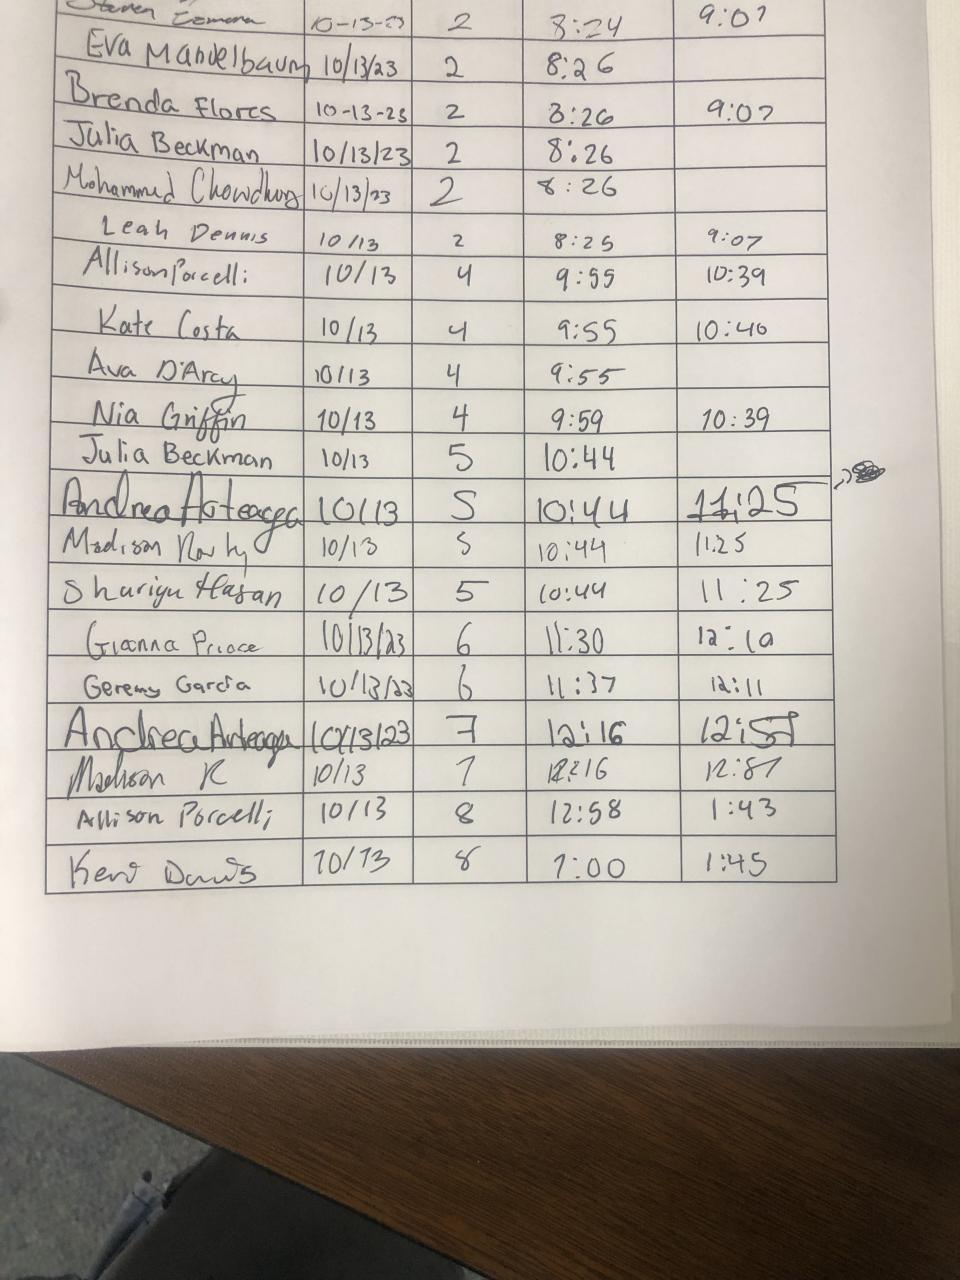 Steven 10-13-23 2 8:24 9:07
Eva Mandelbaum 10/13/23 2 8:26
Brenda Flores 10-13-23 2 8:26 9:07
Julia Beckman 10/13/23 2 8:26
Mohammed Chowdhury 10/13/23 2 8:26
Leah Dennis 10/13 2 8:25 9:07
Allison Porcelli 10/13 4 9:55 10:39
Kate Costa 10/13 4 9:55 10:40
Ava D'Arcy 10/13 4 9:55
Nia Griffin 10/13 4 9:59 10:39
Julia Beckman 10/13 5 10:44
Andrea Arteaga 10/13 5 10:44 11:25
Madison 10/13 5 10:44 11:25
Shariyu Hasan 10/13 5 10:44 11:25
Gianna 10/13/23 6 11:30 12:10
Geremy Garcia 10/13/23 6 11:37 12:11
Andrea Arteaga 10/13/23 7 12:16 12:57
Madison R 10/13 7 12:16 12:57
Allison Porcelli 10/13 8 12:58 1:43
10/13 8 1:00 1:45